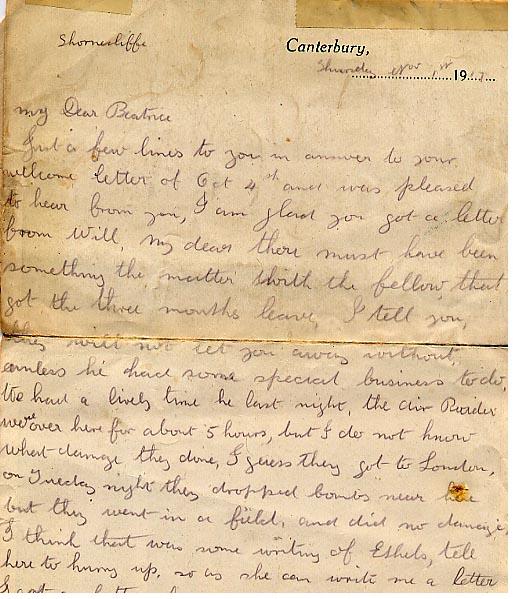 Shorncliffe
Canterbury,
Thursday Nov 1st 1917
My Dear Beatrice
Just a few lines to you in answer to your
welcome letter of Oct 4th and was pleased
to hear from you, I am glad you got a letter
from Will, my dear there must have been
something the matter with the fellow that
got the three months leave, I tell you,
they will not let you away without,
unless he had some special business to do,
We had a lively time he last night, the Air Raider
were over here for about 5 hours, but I do not know
what damage they done, I guess they got to London,
on Tuesday night they dropped bombs near here
but they went in a field, and did no damage,
I think that was some writing of Ethels, tell
here to hurry up, so as she can write me a letter
I got a letter